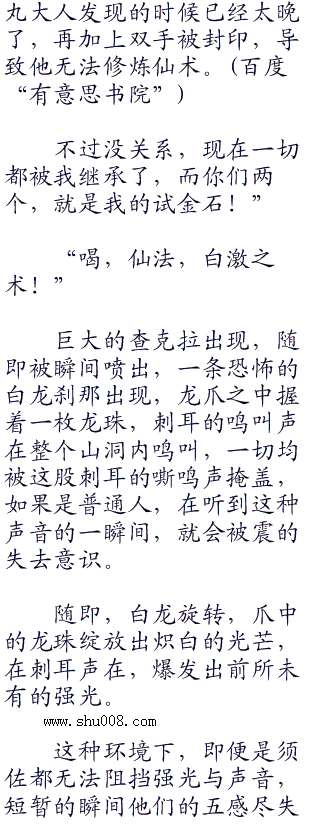 丸大人发现的时候已经太晚
了，再加上双手被封印，导
致他无法修炼仙术。(百度
“有意思书院”)
不过没关系，现在一切
都被我继承了，而你们两
个，就是我的试金石！”
“喝，仙法，白激之
术！”
巨大的查克拉出现，随
即被瞬间喷出，一条恐怖的
白龙刹那出现，龙爪之中握
着一枚龙珠，刺耳的鸣叫声
在整个山洞内鸣叫，一切均
被这股刺耳的嘶鸣声掩盖，
如果是普通人，在听到这种
声音的一瞬间，就会被震的
失去意识。
随即，白龙旋转，爪中
的龙珠绽放出炽白的光芒，
在刺耳声在，爆发出前所未
有的强光。
www.shu008.com
这种环境下，即便是须
佐都无法阻挡强光与声音，
短暂的瞬间他们的五感尽失